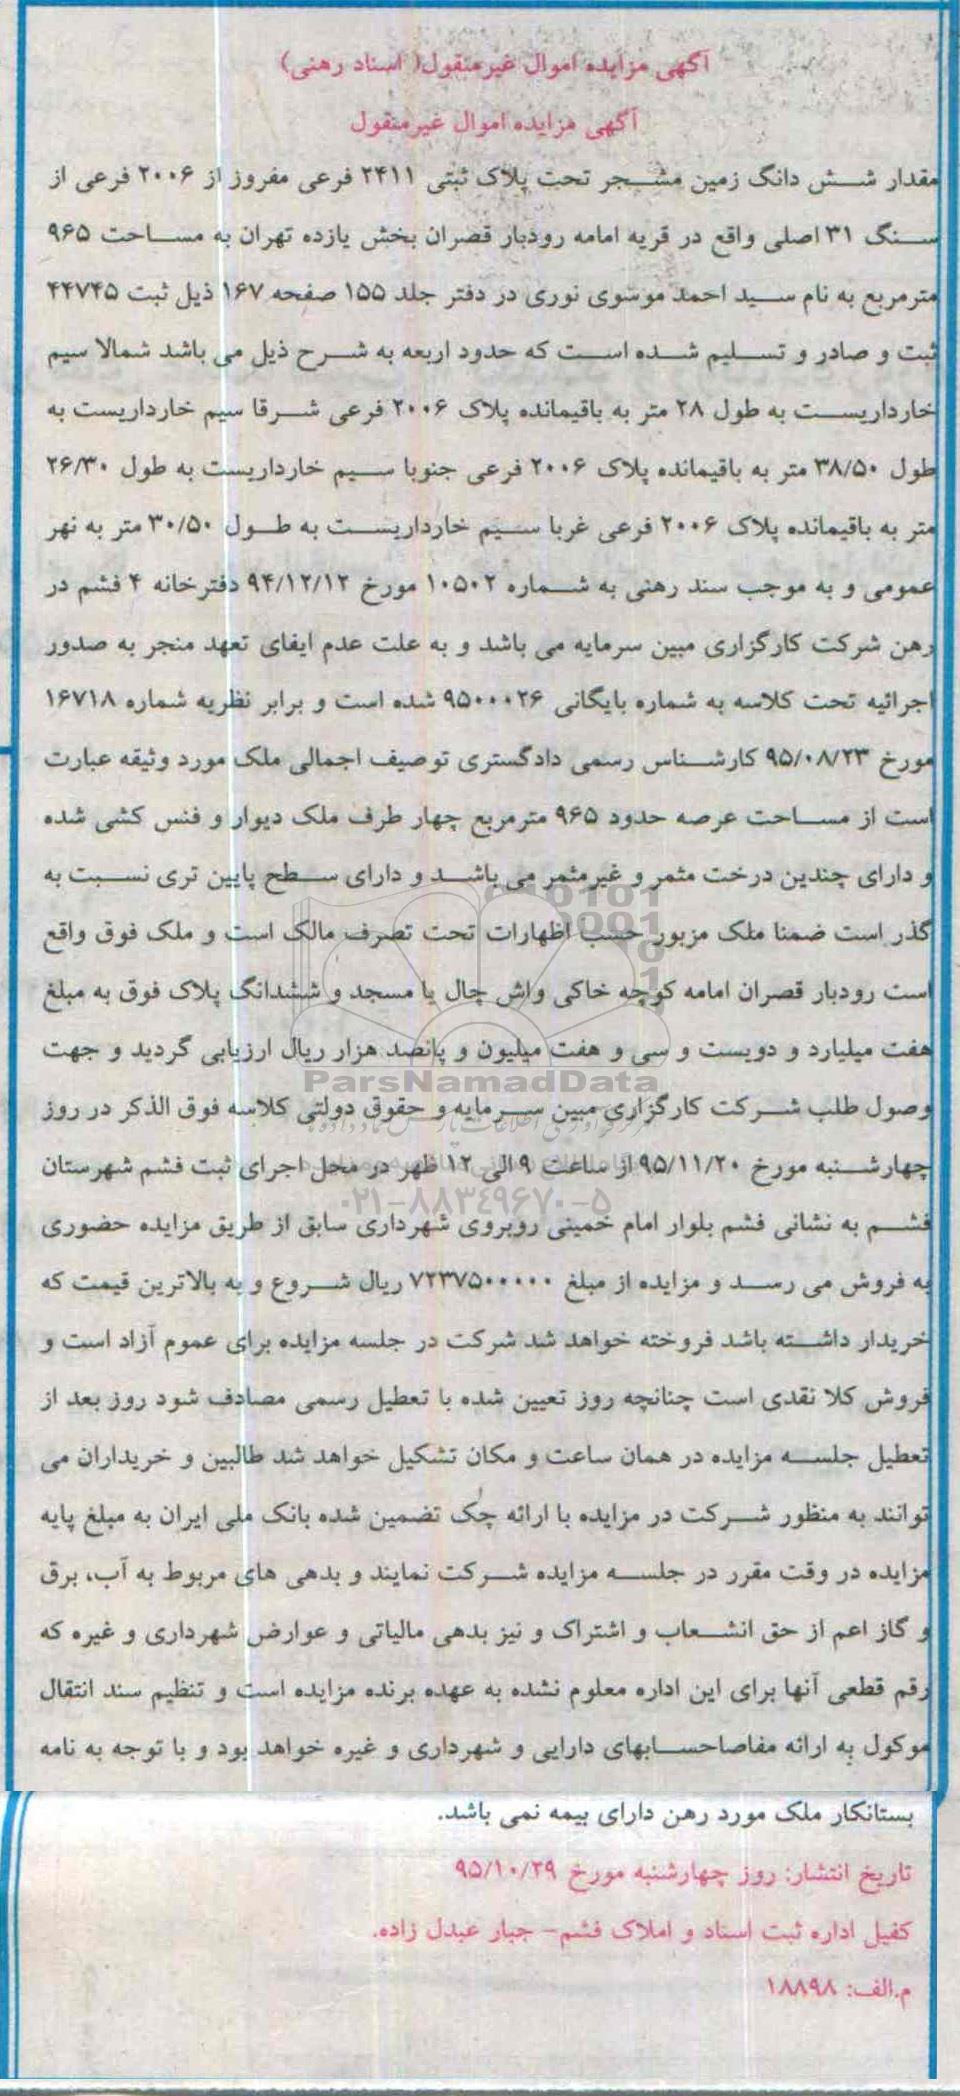 آگهی مزایده اموال غیرمنقول( اسناد رهنی)
آگهی مزایده اموال غیرمنقول
مقدار شش دانگ زمین مشجر تحت پلاک ثبتی ۲۴۱۱ فرعی مفروز از ۲۰۰۶ فرعی از
سنگ ۳۱ اصلی واقع در قریه امامه رودبار قصران بخش یازده تهران به مساحت ۹۶۵
مترمربع به نام سید احمد موسوی نوری در دفتر جلد ۱۵۵ صفحه ۱۶۷ ذیل ثبت ۴۴۷۴۵
ثبت و صادر و تسلیم شده است که حدود اربعه به شرح ذیل می باشد شمالا سیم
خارداریست به طول ۲۸ متر به باقیمانده پلاک ۲۰۰۶ فرعی شرقا سیم خارداریست به
طول ۳۸/۵۰ متر به باقیمانده پلاک ۲۰۰۶ فرعی جنوبا سیم خارداریست به طول ۲۶/۳۰
متر به باقیمانده پلاک ۲۰۰۶ فرعی غربا سیم خارداریست به طول ۳۰/۵۰ متر به نهر
عمومی و به موجب سند رهنی به شماره ۱۰۵۰۲ مورخ ۹۴/۱۲/۱۲ دفترخانه ۴ فشم در
رهن شرکت کارگزاری مبین سرمایه می باشد و به علت عدم ایفای تعهد منجر به صدور
اجرائیه تحت کلاسه به شماره بایگانی ۹۵۰۰۰۲۶ شده است و برابر نظریه شماره ۱۶۷۱۸
مورخ ۹۵/۰۸/۲۳ کارشناس رسمی دادگستری توصیف اجمالی ملک مورد وثیقه عبارت
است از مساحت عرصه حدود ۹۶۵ مترمربع چهار طرف ملک دیوار و فنس کشی شده
و دارای چندین درخت مثمر و غیرمثمر می باشد و دارای سطح پایین تری نسبت به
گذر است ضمنا ملک مزبور حسب اظهارات تحت تصرف مالک است و ملک فوق واقع
است رودبار قصران امامه کوچه خاکی واش چال یا مسجد و ششدانگ پلاک فوق به مبلغ
هفت میلیارد و دویست و سی و هفت میلیون و پانصد هزار ریال ارزیابی گردید و جهت
ParsNamadData
وصول طلب شرکت کارگزاری مبین سرمایه و حقوق دولتی کلاسه فوق الذکر در روز
چهارشنبه مورخ ۹۵/۱۱/۲۰ از ساعت ۹ الی ۱۲ ظهر در محل اجرای ثبت فشم شهرستان
۰۲۱-۸۸۳۴۹۶۷۰-۵
فشم به نشانی فشم بلوار امام خمینی روبروی شهرداری سابق از طریق مزایده حضوری
به فروش می رسد و مزایده از مبلغ ۷۲۳۷۵۰۰۰۰۰ ریال شروع و به بالاترین قیمت که
خریدار داشته باشد فروخته خواهد شد شرکت در جلسه مزایده برای عموم آزاد است و
فروش کلا نقدی است چنانچه روز تعیین شده با تعطیل رسمی مصادف شود روز بعد از
تعطیل جلسه مزایده در همان ساعت و مکان تشکیل خواهد شد طالبین و خریداران می
توانند به منظور شرکت در مزایده با ارائه چک تضمین شده بانک ملی ایران به مبلغ پایه
مزایده در وقت مقرر در جلسه مزایده شرکت نمایند و بدهی های مربوط به آب، برق
و گاز اعم از حق انشعاب و اشتراک و نیز بدهی مالیاتی و عوارض شهرداری و غیره که
رقم قطعی آنها برای این اداره معلوم نشده به عهده برنده مزایده است و تنظیم سند انتقال
موکول به ارائه مفاصاحسابهای دارایی و شهرداری و غیره خواهد بود و با توجه به نامه
بستانکار ملک مورد رهن دارای بیمه نمی باشد.
تاریخ انتشار: روز چهارشنبه مورخ ۹۵/۱۰/۲۹
کفیل اداره ثبت اسناد و املاک فشم- جبار عبدل زاده.
م.الف: ۱۸۸۹۸